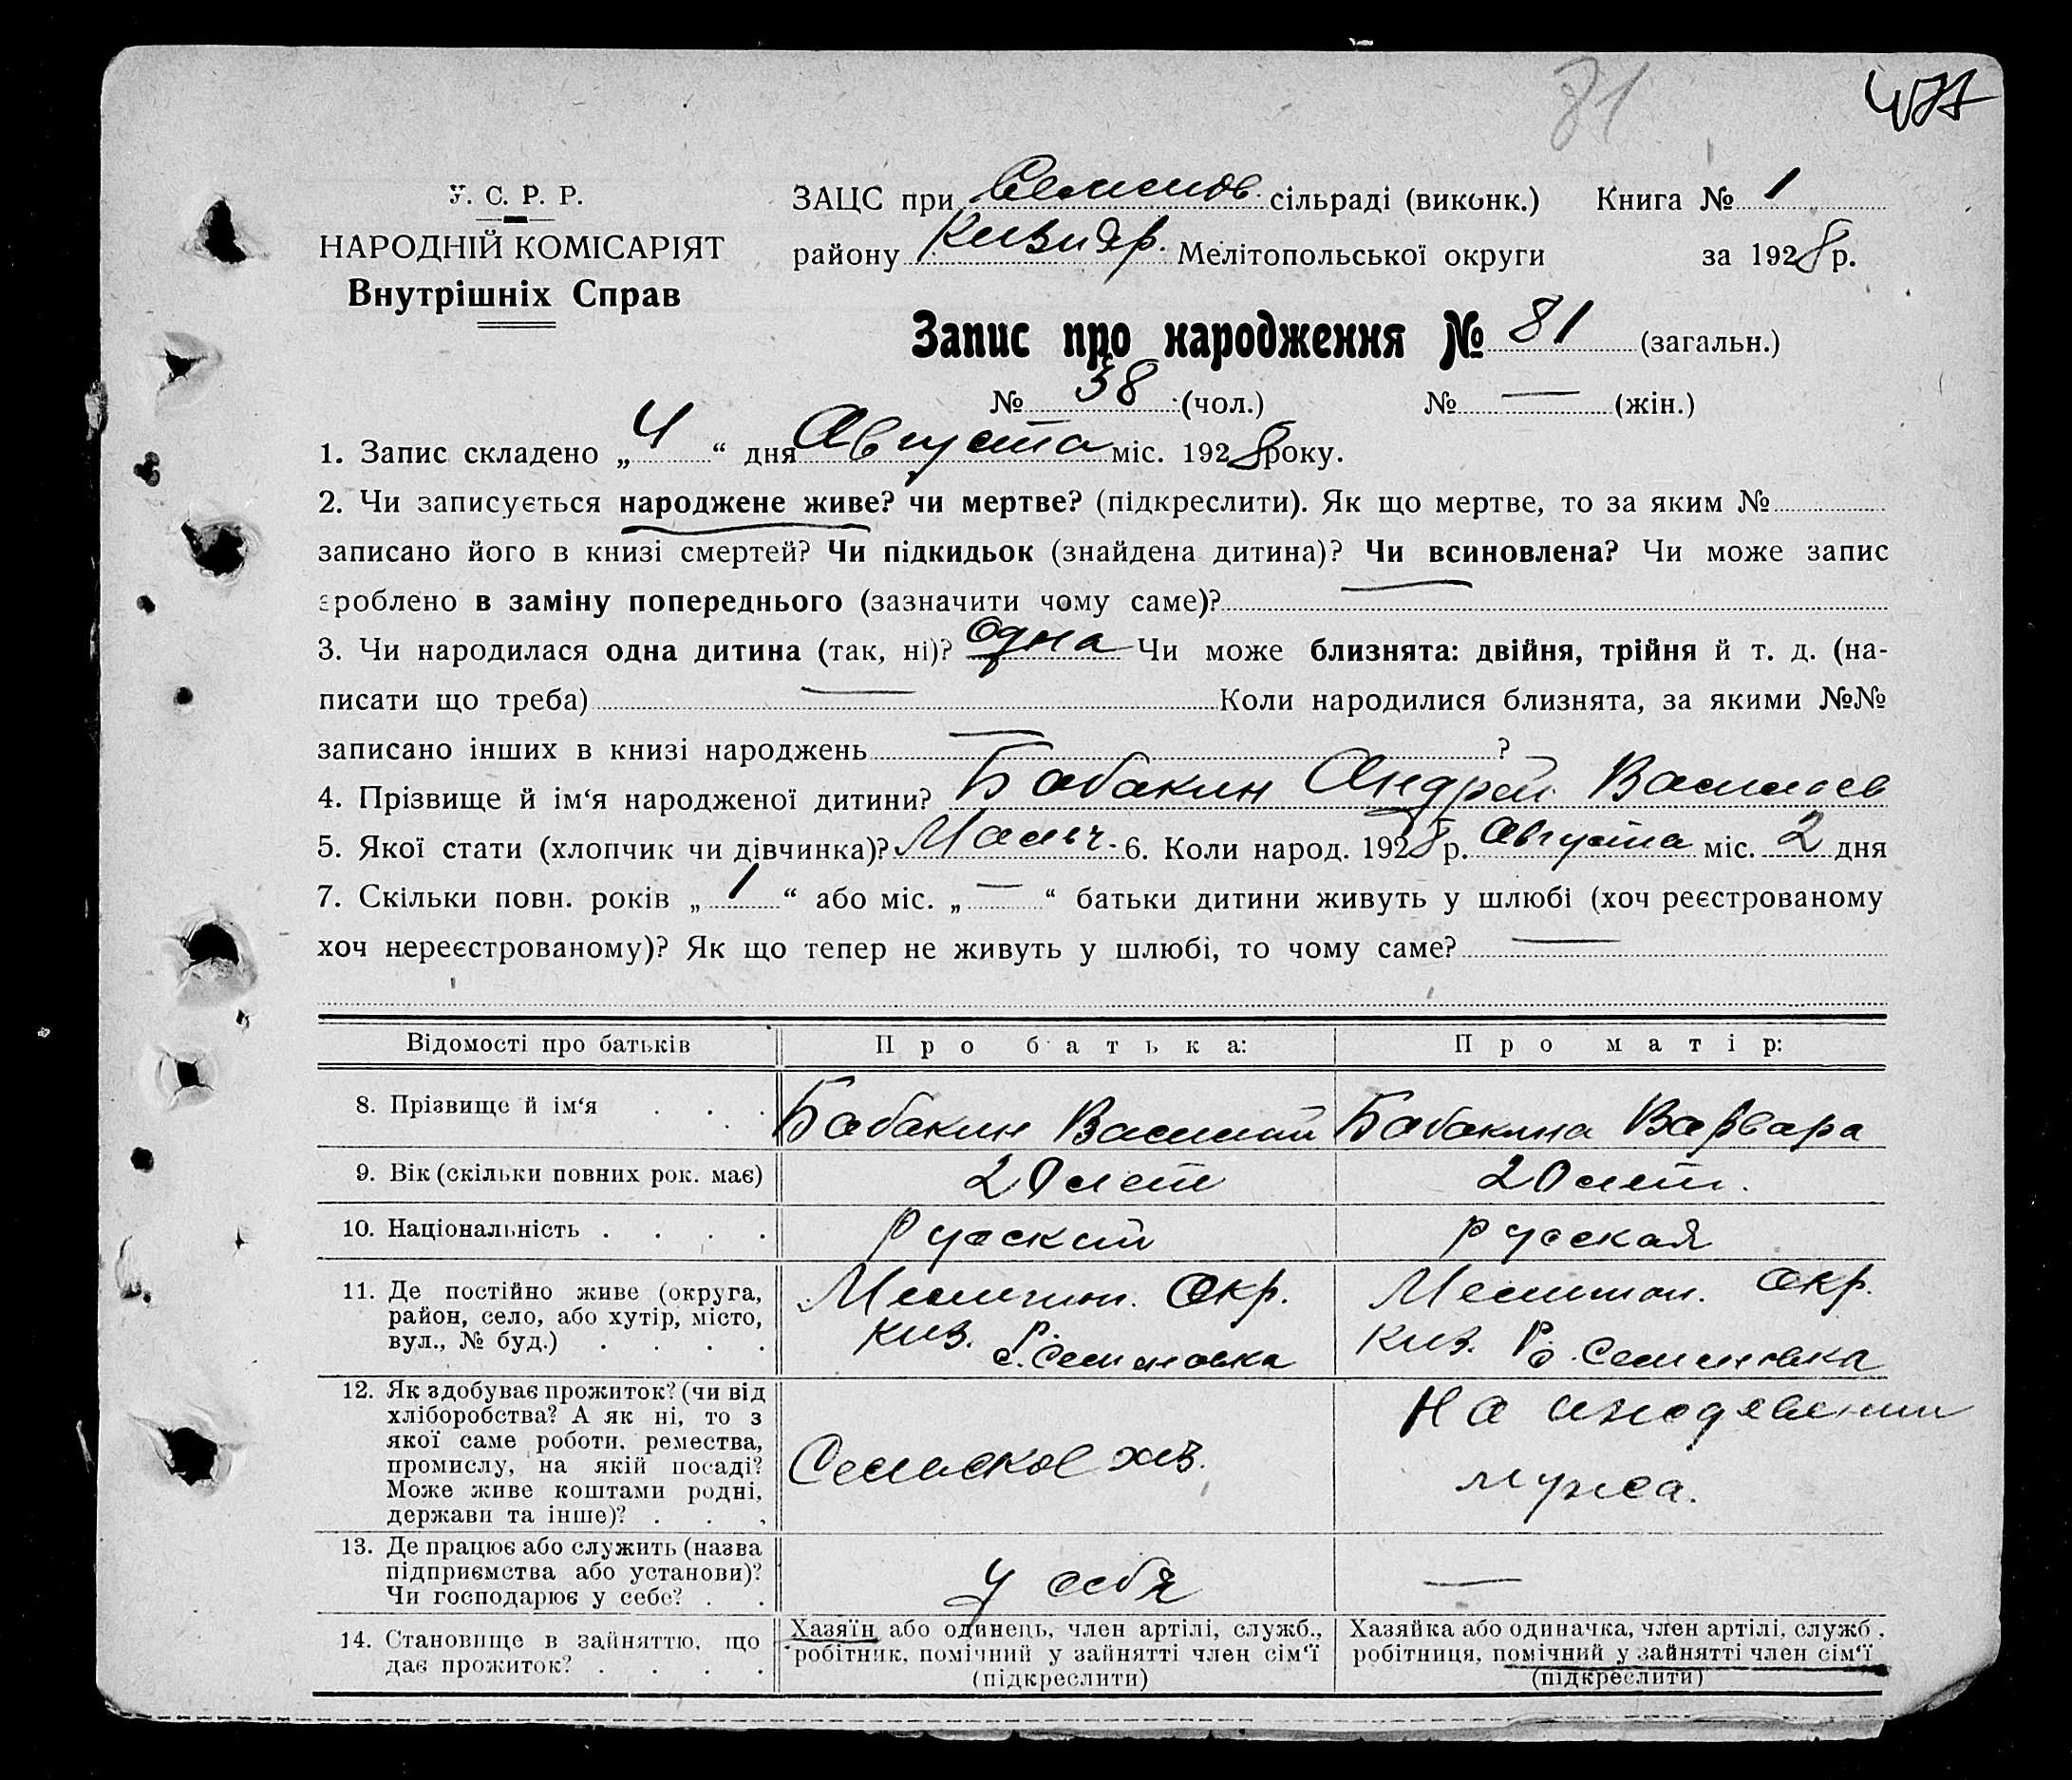 81
У. С. Р. Р.
НАРОДНІЙ КОМІСАРІЯТ
Внутрішніх Справ
ЗАЦС при Семенов. сільраді (виконк.) Книга № 1
району Кизияр. Мелітопольської округи за 1928 р.
Запис про народження № 81 (загальн.)
№ 38 (чол.) № — (жін.)
1. Запис складено „ 4 “ дня Августа міс. 1928 року.
2. Чи записується народжене живе? чи мертве? (підкреслити). Як що мертве, то за яким №
записано його в книзі смертей? Чи підкидьок (знайдена дитина)? Чи всиновлена? Чи може запис
зроблено в заміну попереднього (зазначити чому саме)? —
3. Чи народилася одна дитина (так, ні)? Одна Чи може близнята: двійня, трійня й т. д. (на-
писати що треба) — Коли народилися близнята, за якими №№
записано інших в книзі народжень — ?
4. Прізвище й ім‘я народженої дитини? Бабакин Андрей Васильев
5. Якої стати (хлопчик чи дівчинка)? Мальч. 6. Коли народ. 1928 р. Августа міс. 2 дня
7. Скільки повн. років „ 1 “ або міс. „ — “ батьки дитини живуть у шлюбі (хоч реєстрованому
хоч нереєстрованому)? Як що тепер не живуть у шлюбі, то чому саме? —
Відомості про батьків Про батька: Про матір:
8. Прізвище й ім‘я . . . Бабакин Василий Бабакина Варвара
9. Вік (скільки повних рок. має) 20 лет 20 лет.
10. Національність . . . . Руский руская
11. Де постійно живе (округа,
район, село, або хутір, місто,
вул., № буд.) . . . .
Мелитоп. Окр.
Киз. Р.
с. Семеновка
Мелитоп. Окр.
Киз. Р. с. Семеновка
12. Як здобуває прожиток? (чи від
хліборобства? А як ні, то з
якої саме роботи, ремества,
промислу, на якій посаді?
Може живе коштами родні,
держави та інше)? . . .
Сельское хоз.
На иждевении
мужа.
13. Де працює або служить (назва
підприємства або установи)?
Чи господарює у себе? . .
У себя
—
14. Становище в зайняттю, що
дає прожиток? . . . .
Хазяїн або одинець, член артілі, служб.,
робітник, помічний у зайнятті член сім‘ї
(підкреслити)
Хазяйка або одиначка, член артілі, служб.,
робітниця, помічний у зайнятті член сім‘ї
(підкреслити)